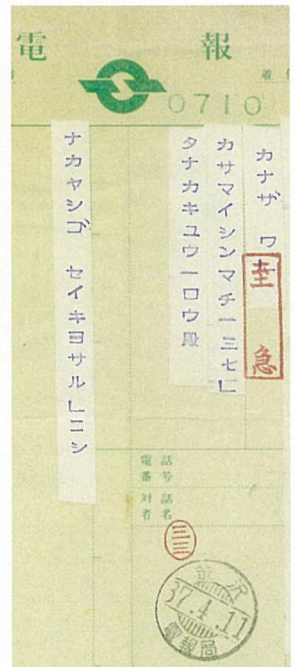 電報
着信
0710
カナザワ市
至急
カサマイシンマチ一ノ三七」
タナカキユウ一ロウ殿
ナカヤシゴ セイキヨサル」ニシ
電話番号
対話者名
三三
金沢
37.4.11
電報局